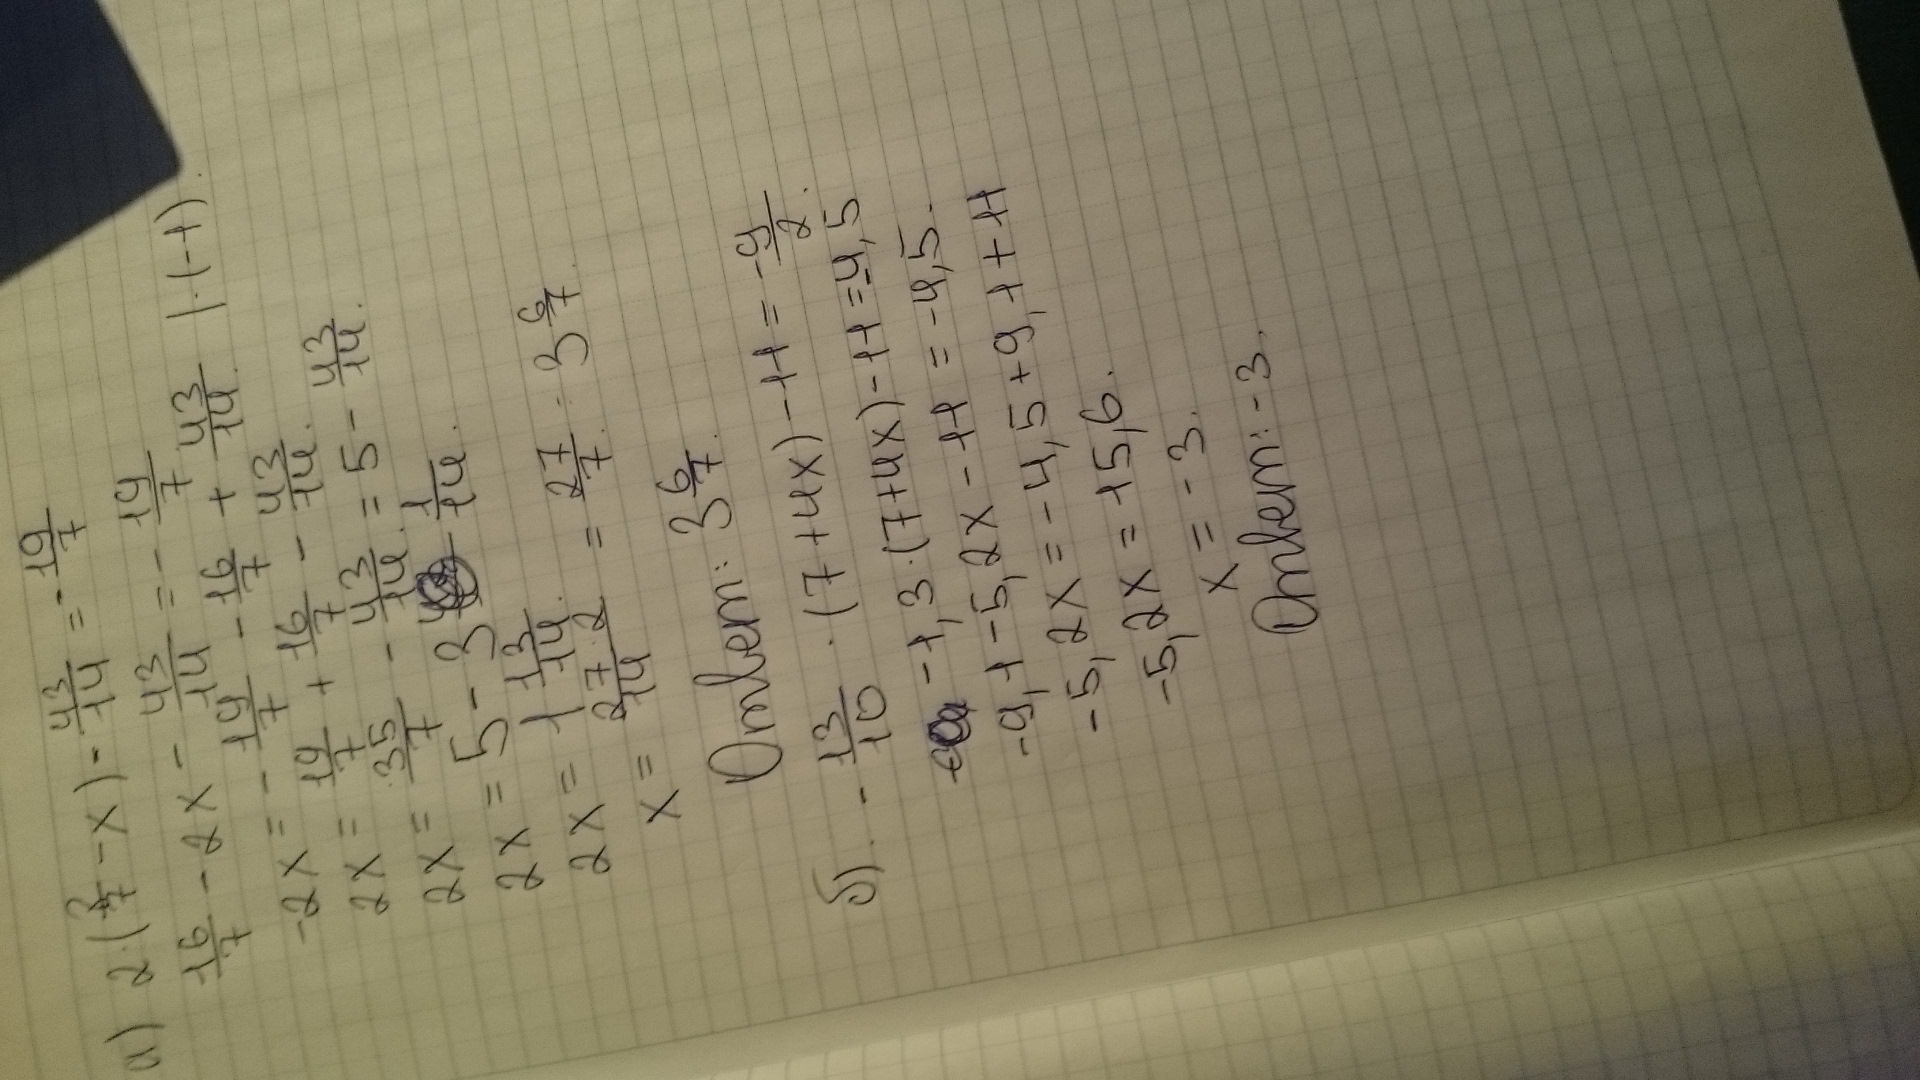 а) 2·(8/7-x)-43/14=-19/7
16/7-2x-43/14=-19/7
-2x=-19/7-16/7+43/14. |·(-1).
2x=19/7+16/7-43/14.
2x=35/7-43/14.=5-43/14.
2x=5-3 1/14.
2x=1 13/14.
x=27·2/14=27/7=3 6/7.
Ответ: 3 6/7.
б). -13/10·(7+4x)-11=-9/2.
-1,3·(7+4x)-11=-4,5
-9,1-5,2x-11=-4,5.
-5,2x=-4,5+9,1+11
-5,2x=15,6.
x=-3.
Ответ:-3.